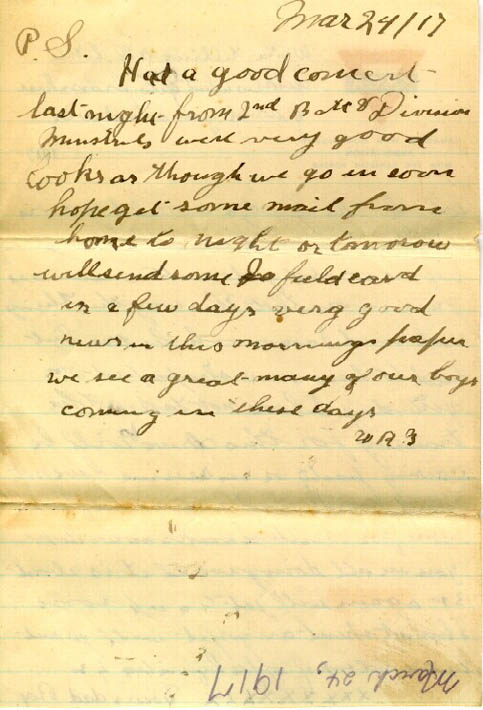 Mar 24/17
P. S.
Had a good concert
last night from 2nd Batt & Division
Minstrels were very good
looks as though we go in soon
hope get some mail from
home to night or tomorow
will send some field card
in a few days very good
news in this mornings paper
we see a great many of our boys
coming in these days
March 24, 1917